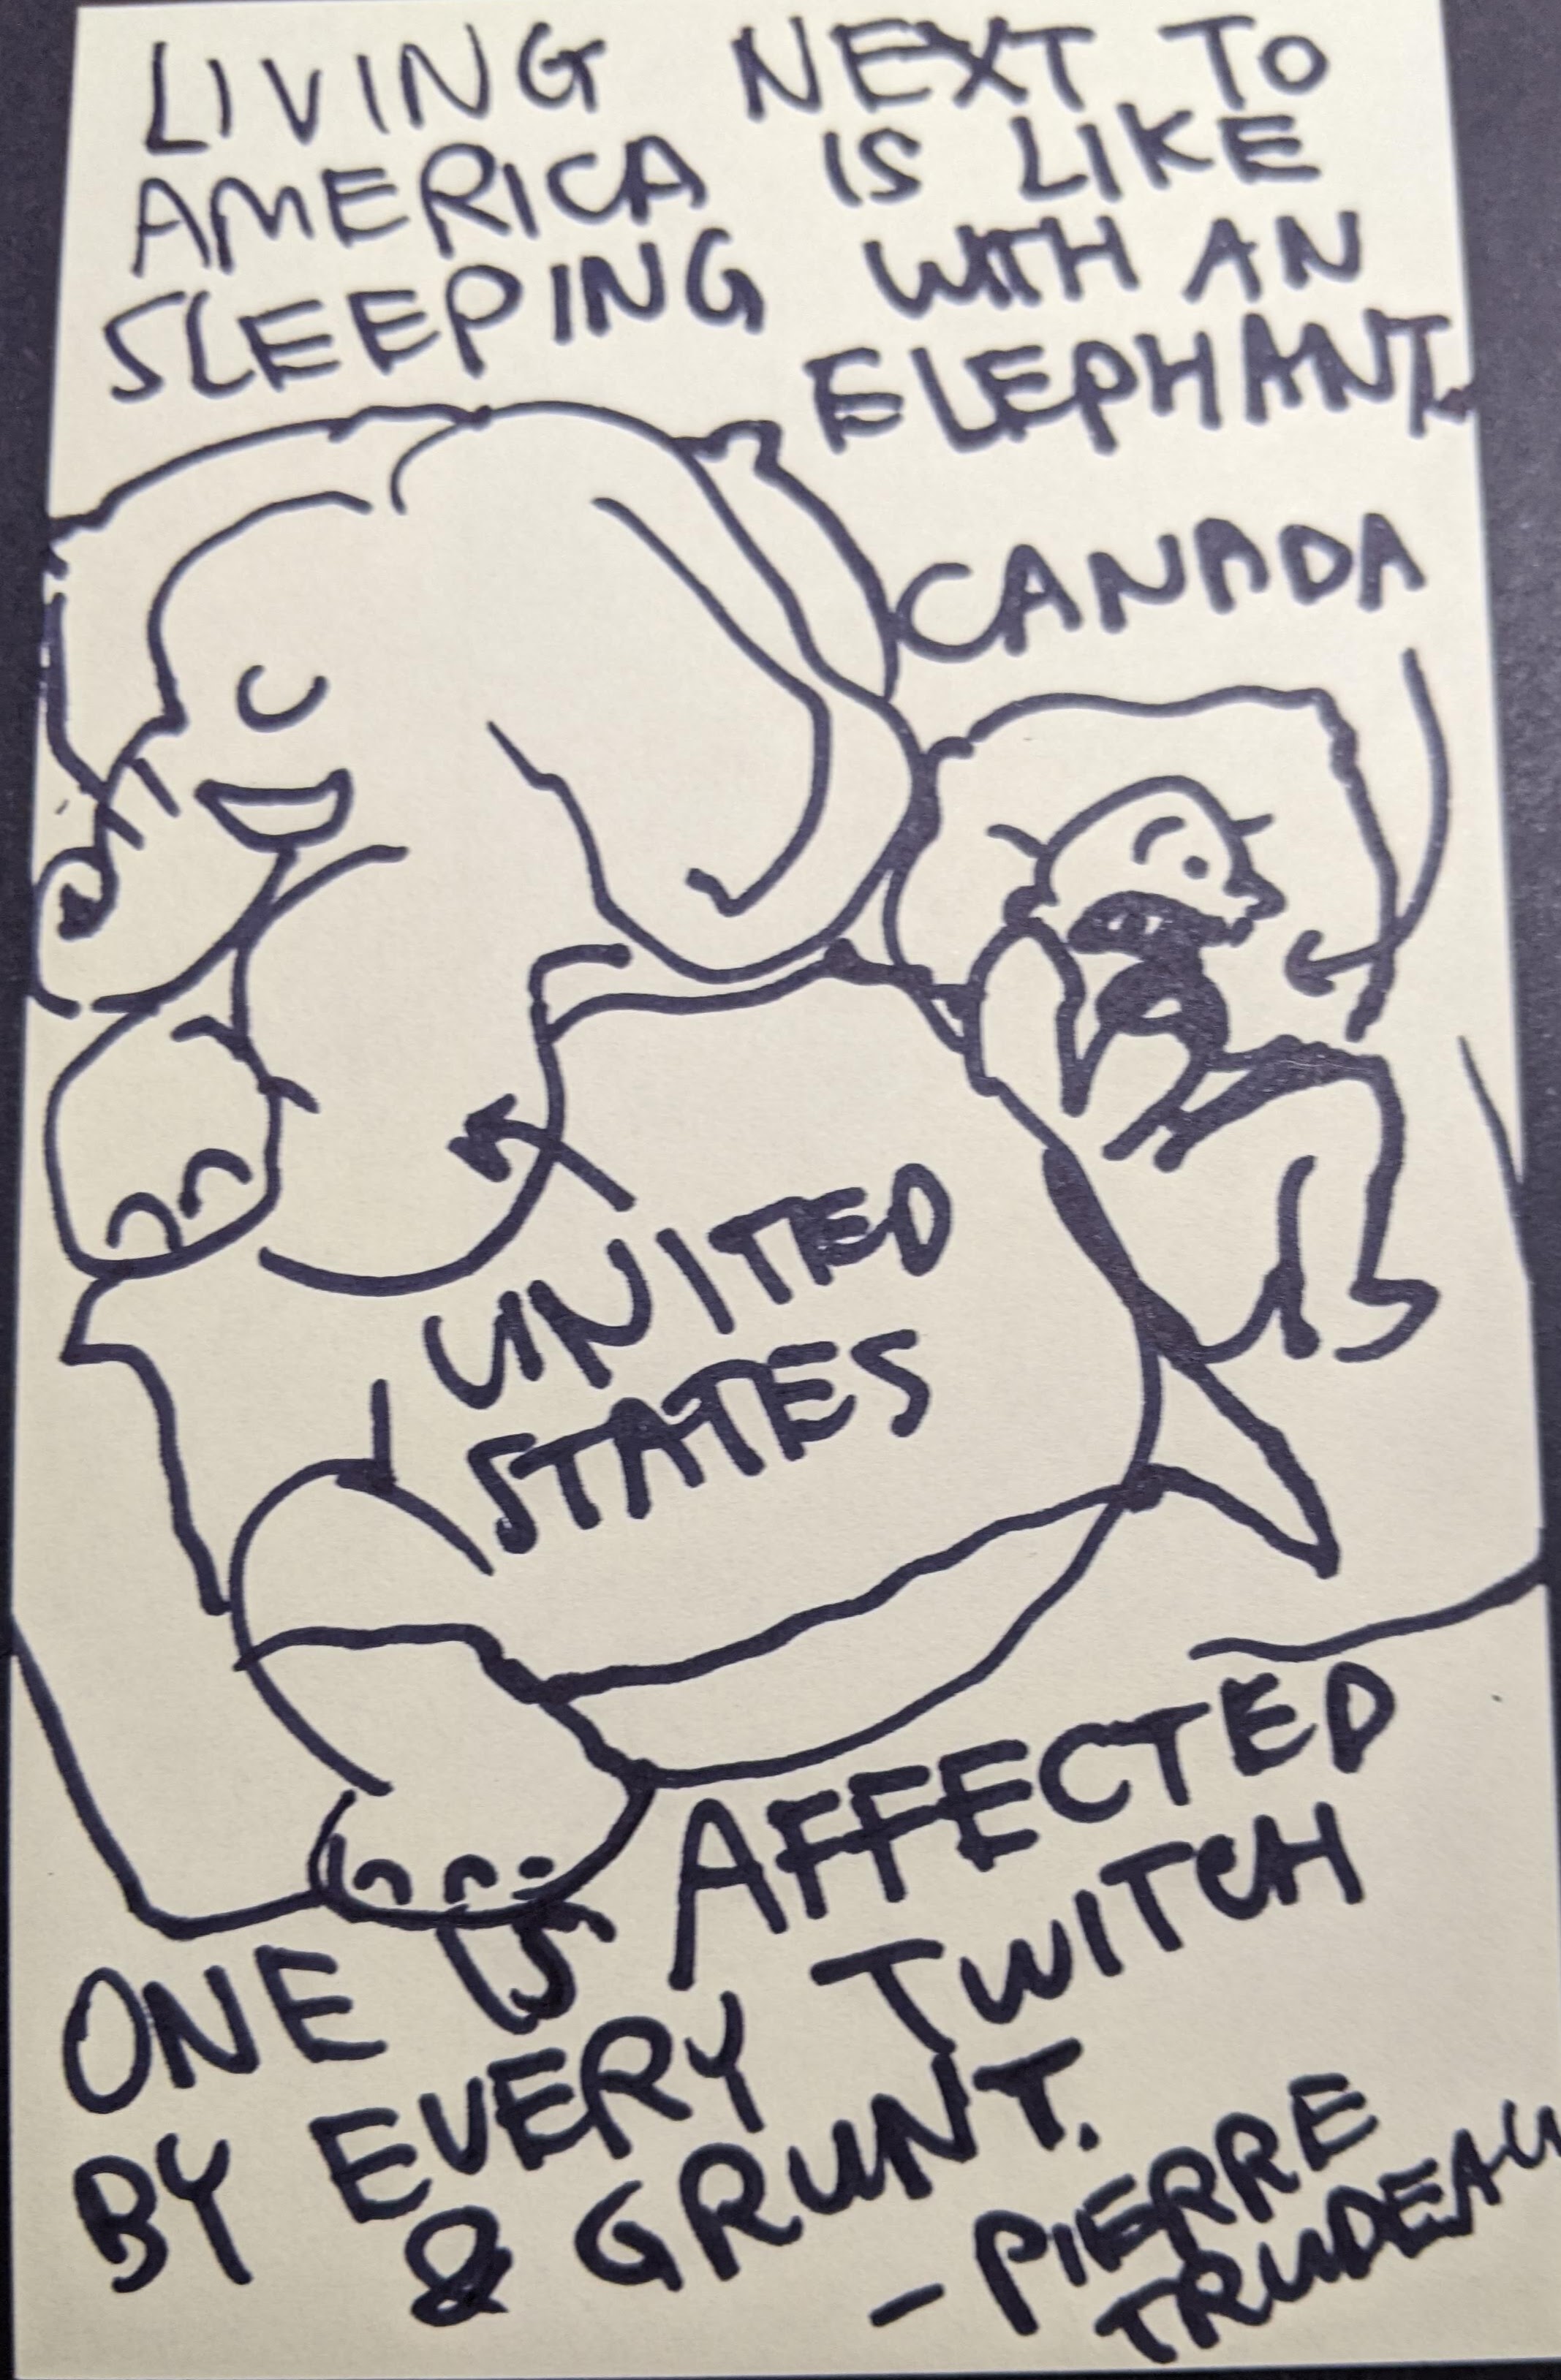 LIVING NEXT TO
AMERICA IS LIKE
SLEEPING WITH AN
ELEPHANT.
CANADA
UNITED
STATES
ONE IS AFFECTED
BY EVERY TWITCH
& GRUNT.
- PIERRE
TRUDEAU